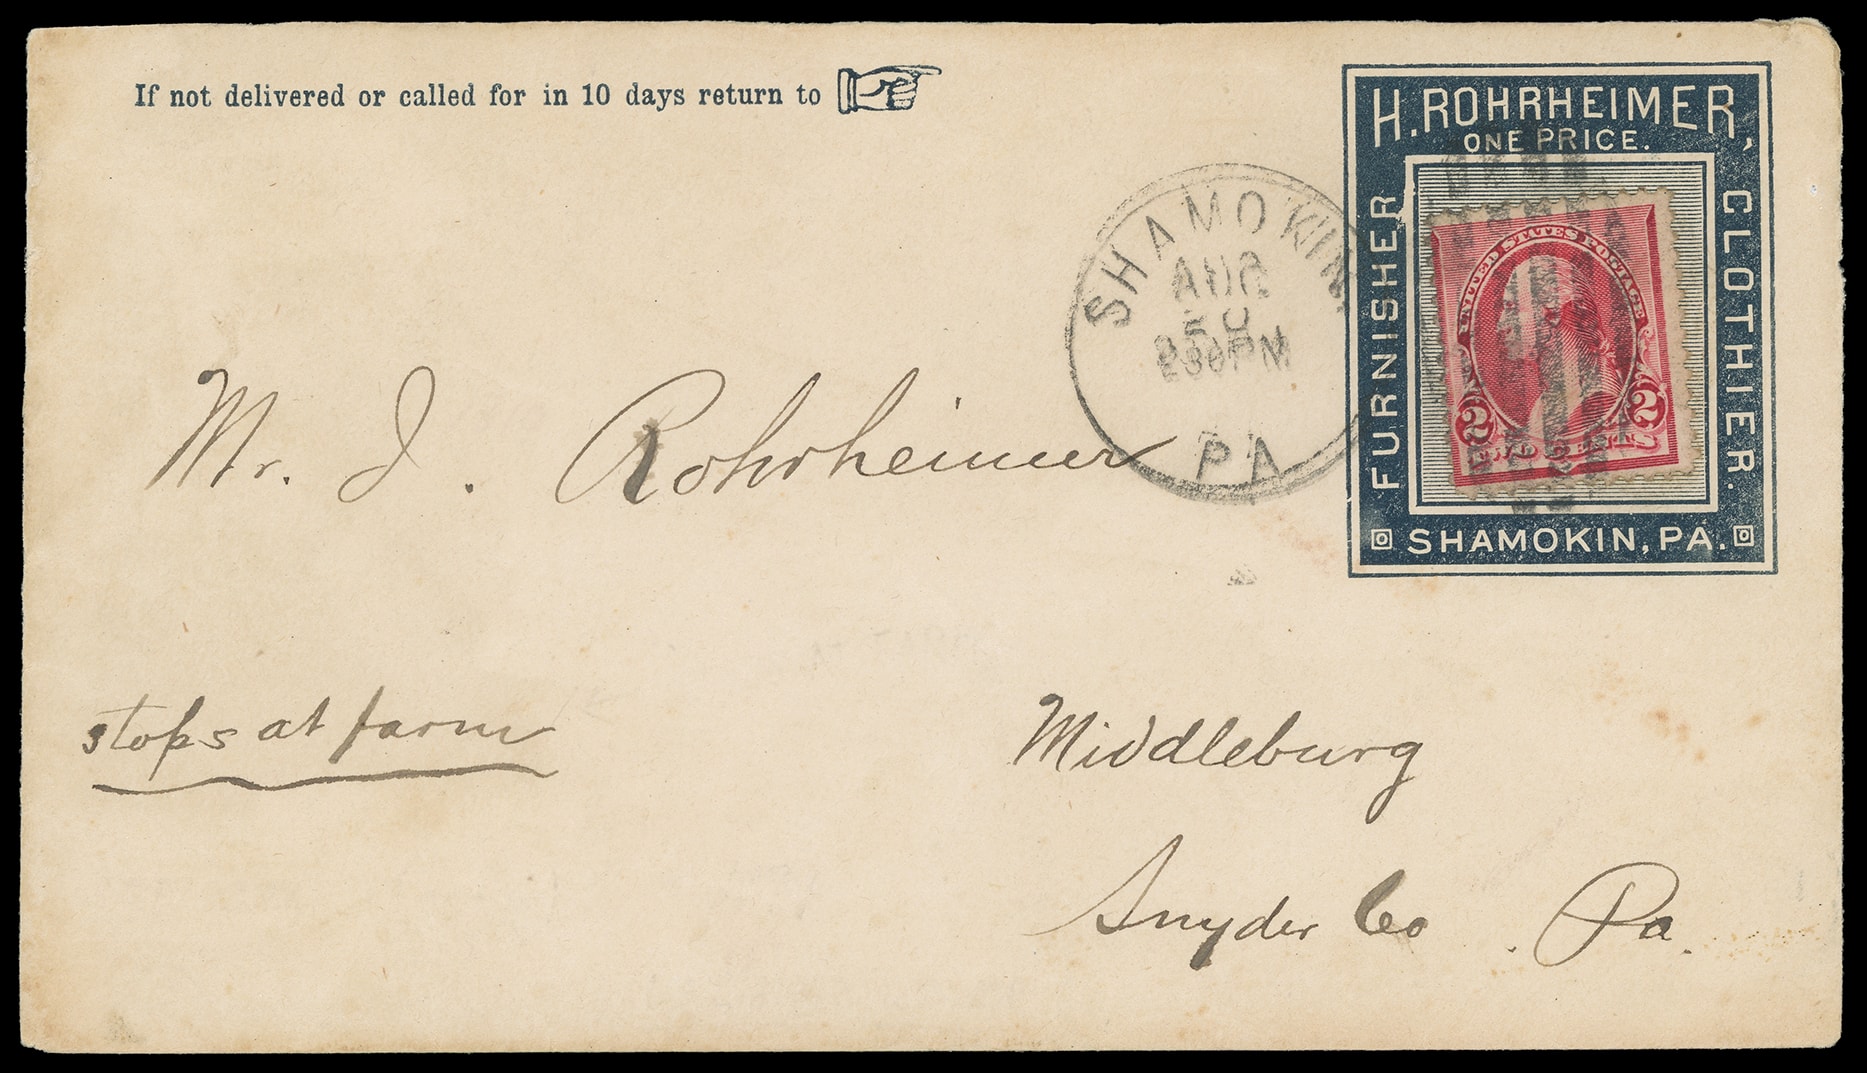 If not delivered or called for in 10 days return to
H. ROHRHEIMER,
ONE PRICE.
FURNISHER
CLOTHIER.
SHAMOKIN, PA.
UNITED STATES POSTAGE
2 2
TWO CENTS
SHAMOKIN
AUG
PM
PA
Mr. J. Rohrheimer
stops at farm
Middleburg
Snyder Co. Pa.